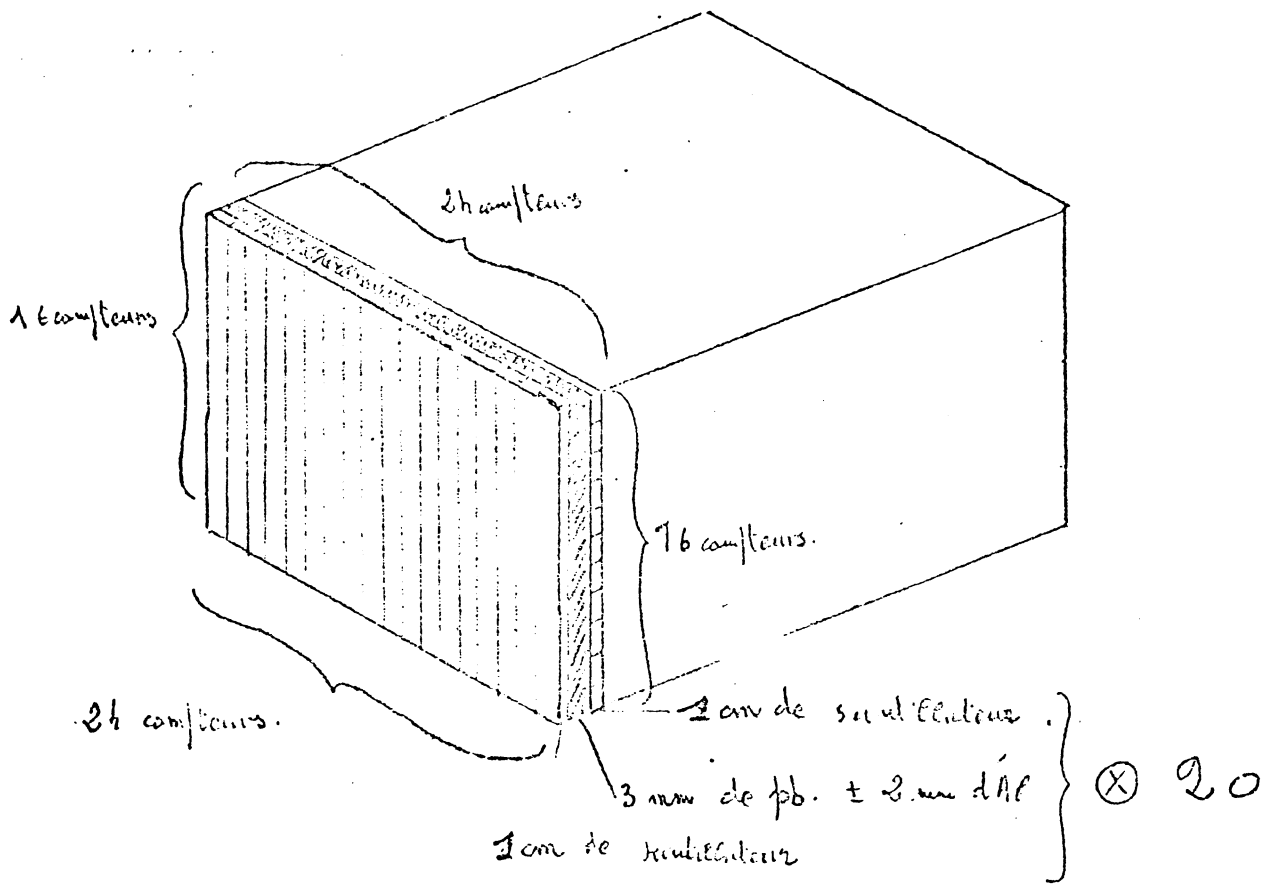 24 compteurs
16 compteurs
16 compteurs.
24 compteurs.
1 cm de scintillateur.
3 mm de pb. ± 2 mm d'Al
⊗ 20
1 cm de scintillateur